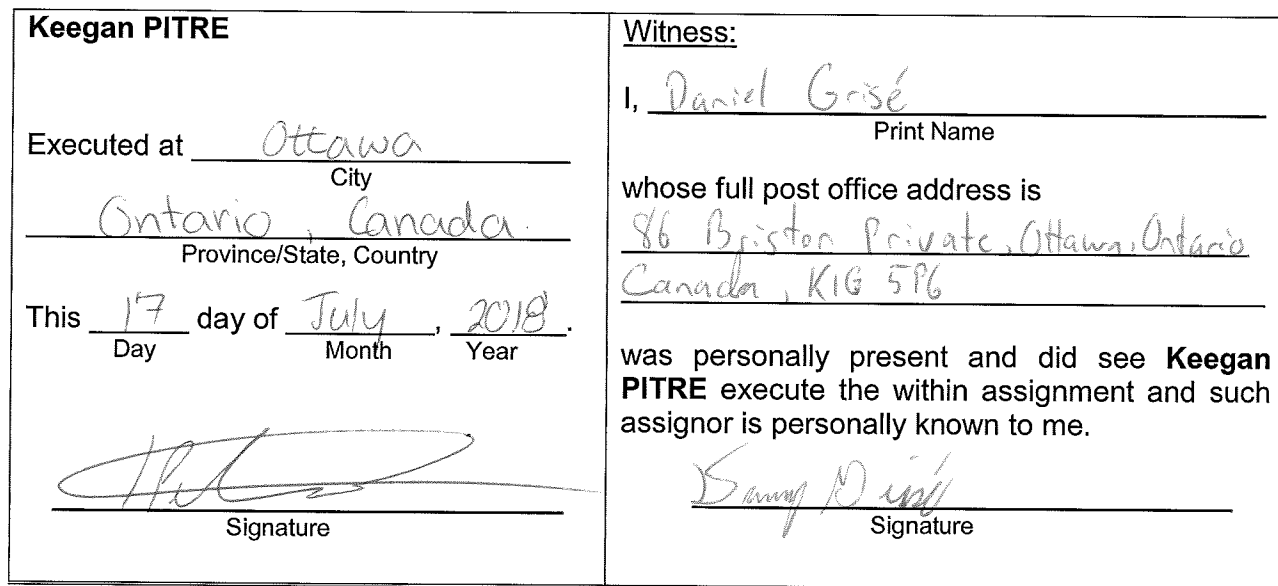 Keegan PITRE
Executed at Ottawa
City
Ontario, Canada.
Province/State, Country
This 17 day of July, 2018.
Day Month Year
Signature
Witness:
I, Daniel Grisé
Print Name
whose full post office address is
86 Briston Private, Ottawa, Ontario
Canada, K1G 5P6
was personally present and did see Keegan
PITRE execute the within assignment and such
assignor is personally known to me.
Signature